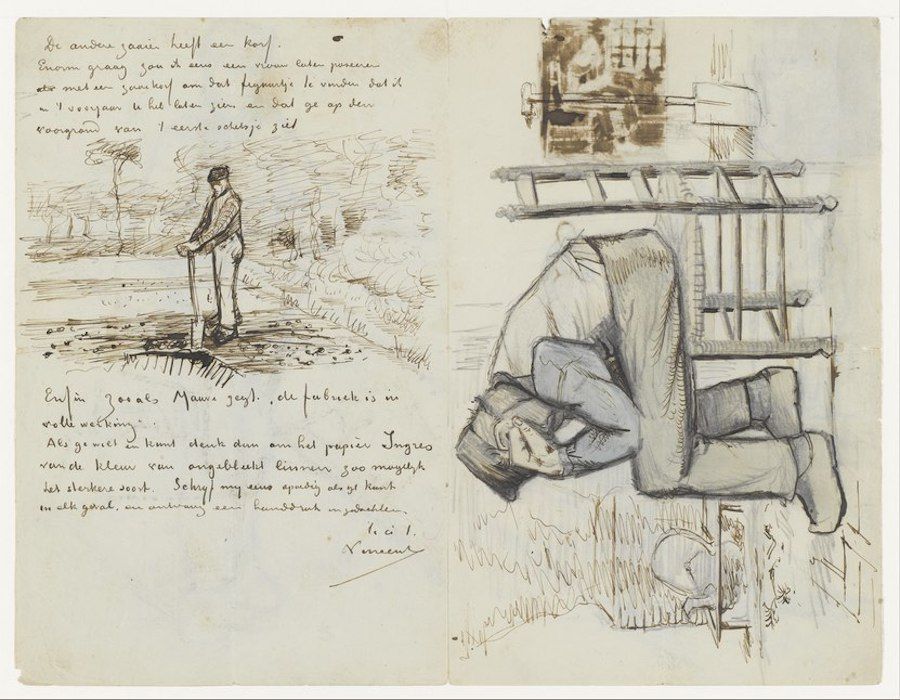 De andere zaaier heeft een korf.
Enorm graag zou ik eens een vrouw laten poseeren
met een zaaikorf om dat figuurtje te vinden dat ik
u 't voorjaar heb laten zien en dat ge op den
voorgrond van 't eerste schetsje ziet
Enfin zooals Mauve zegt, de fabriek is in
volle werking.
Als ge wilt en kunt denk dan om het papier Ingres
van de kleur van ongebleekt linnen zoo mogelijk
het sterkere soort. Schryf my eens spoedig als ge kunt
in elk geval, en ontvang een handdruk in gedachten.
t. à t.
Vincent